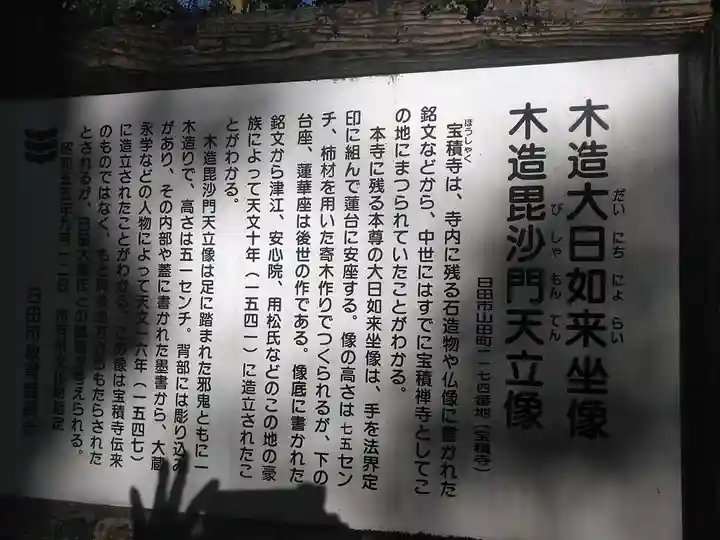 木造大日如来坐像
だいにちにょらい
木造毘沙門天立像
びしゃもんてん
日田市山田町二一七四番地(宝積寺)
ほうしゃく
宝積寺は、寺内に残る石造物や仏像に書かれた
銘文などから、中世にはすでに宝積禅寺としてこ
の地にまつられていたことがわかる。
本寺に残る本尊の大日如来坐像は、手を法界定
印に組んで蓮台に安座する。像の高さは七五セン
チ、柿材を用いた寄木作りでつくられるが、下の
台座、蓮華座は後世の作である。像底に書かれた
銘文から津江、安心院、用松氏などのこの地の豪
族によって天文十年(一五四一)に造立されたこ
とがわかる。
木造毘沙門天立像は足に踏まれた邪鬼ともに一
木造りで、高さは五一センチ。背部には彫り込み
があり、その内部や蓋に書かれた墨書から、大蔵
永学などの人物によって天文一六年(一五四七)
に造立されたことがわかる。この像は宝積寺伝来
のものではなく、もと
からもたらされた
とされるが、日田大蔵氏との関連が考えられる。
昭和五五年九月一二日 市有形文化財指定
日田市教育委員会